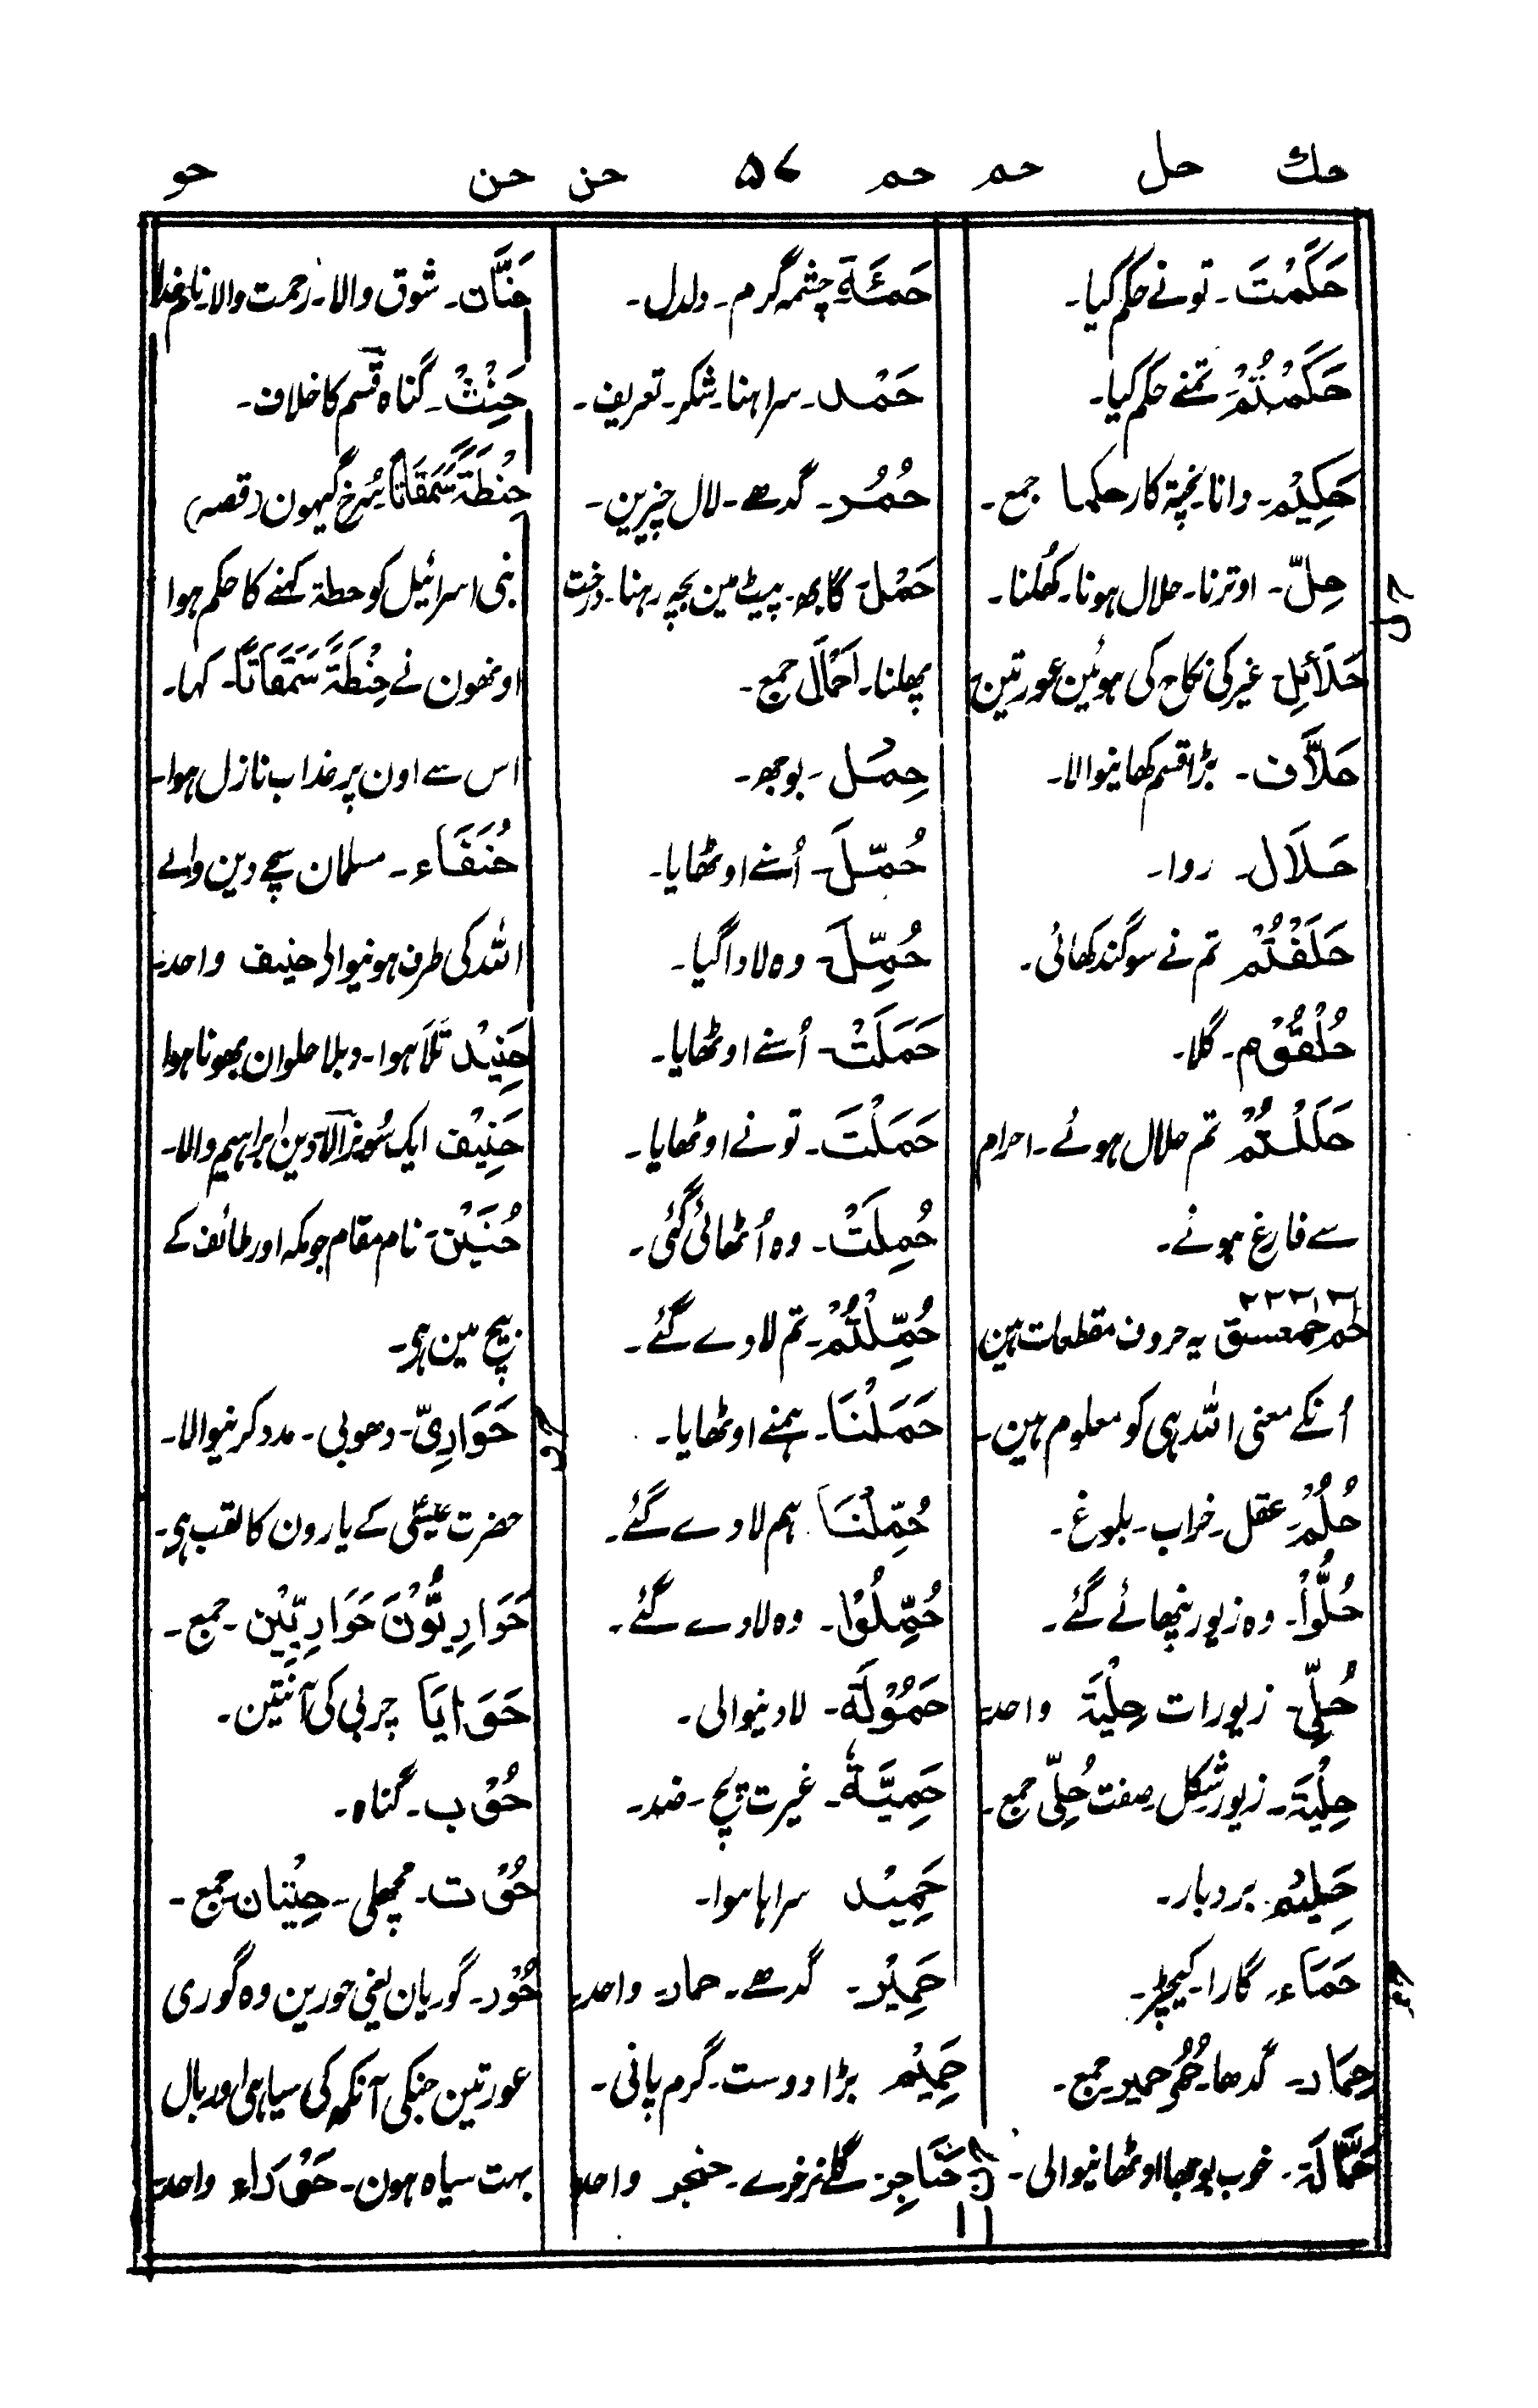 حك حل حم حم ۵۷ حن حن حو
حَكَمْتَ۔ تو نے حکم کیا۔
حَكَمْتُمْ۔ تمنے حکم کیا۔
حَكِيْم۔ دانا۔ پختہ کار حکما جمع۔
حِلّ۔ اوترنا۔ حلال ہونا۔ کُھلنا۔
حل
حَلَائِل۔ غیر کی نکاح کی ہوئین عورتین
حَلَّاف۔ بڑا قسم کھانیوالا۔
حَلَال۔ روا۔
حَلَفْتُمْ تم نے سوگند کھائی۔
حُلْقُوْم۔ گلا۔
حَلَلْتُمْ تم حلال ہوئے۔ احرام
سے فارغ ہوئے۔
حم حمعسق یہ حروف مقطعات ہین
اُنکے معنی اللہ ہی کو معلوم ہین۔
حُلُمْ۔ عقل۔ خواب۔ بلوغ۔
حُلُّوْا۔ وہ زیور پنہائے گئے۔
حُلِّی۔ زیورات حِلْيَة واحد
حِلْيَة۔ زیور شکل صفت حُلِیّ جمع۔
حَلِيْم۔ بردبار۔
حَمَاء۔ گارا۔ کیچڑ۔
حم
حِمَار۔ گدھا۔ حُمُر حمیر۔ جمع۔
حَمَّالَة۔ خوب بوجھا اوٹھانیوالی۔
حَمِئَة۔ چشمہ گرم۔ دلدل۔
حَمْد۔ سراہنا۔ شکر۔ تعریف۔
حُمُر۔ گدھے۔ لال چیزین۔
حَمْل۔ گابھ۔ پیٹ مین بچہ رہنا۔ درخت
پھلنا۔ اَحْمَال جمع۔
حِمْل۔ بوجھ۔
حُمِّلَ۔ اُسنے اوٹھایا۔
حُمِّلَ۔ وہ لادا گیا۔
حَمَلَتْ۔ اُسنے اوٹھایا۔
حَمَلْتَ۔ تو نے اوٹھایا۔
حُمِلَتْ۔ وہ اُٹھائی گئی۔
حُمِّلْتُمْ۔ تم لادے گئے۔
حَمَلْنَا۔ ہمنے اوٹھایا۔
حُمِّلْنَا۔ ہم لادے گئے۔
حُمِّلُوْا۔ وہ لادے گئے۔
حَمُوْلَة۔ لادنیوالی۔
حَمِيَّة۔ غیرت پچ۔ ضد۔
حَمِيْد سراہا ہوا۔
حَمِيْر۔ گدھے۔ حمار۔ واحد
حَمِيْم بڑا دوست۔ گرم پانی۔
حن
حَنَاجِر۔ گلے نرخرے۔ حنجر واحد
حَنَّان۔ شوق والا۔ رحمت والا۔ نام خدا
حِنْث۔ گناہ قسم کا خلاف۔
حِنْطَةً سَمْقَاتًا۔ سُرخ گیہون (قصہ)
بنی اسرائیل کو حطة کہنے کا حکم ہوا
اونھون نے حِنْطَةً سَمْقَاتًا۔ کہا۔
اس سے اون پر عذاب نازل ہوا۔
حُنَفَاء۔ مسلمان سچے دین والے
اللہ کی طرف ہونیوالے حنیف واحد
حَنِيْذ تَلا ہوا۔ دبلا حلوان بھونا ہوا
حَنِيْف ایک سُو نرالا۔ دین ابراہیم والا۔
حُنَيْن۔ نام مقام جو مکہ اور طائف کے
بیچ مین ہی۔
حو
حَوَارِيّ۔ دھوبی۔ مدد کرنیوالا۔
حضرت عیسٰی کے یارون کا لقب ہی۔
حَوَارِيُّوْنَ حَوَارِيِّيْن۔ جمع۔
حَوَايَا چربی کی آنتین۔
حُوْب۔ گناہ۔
حُوْت۔ مچھلی۔ حِيْتَان۔ جمع۔
حُوْر۔ گوریان یعنی حورین وہ گوری
عورتین جنکی آنکھ کی سیاہی اور بال
بہت سیاہ ہون۔ حَوْرَاء واحد